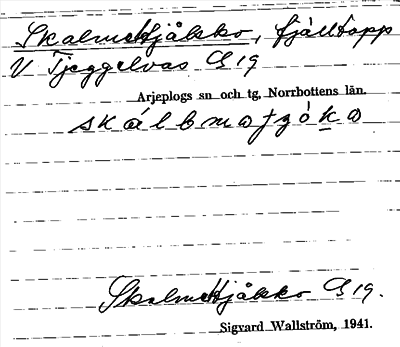 Skalmetjåkko, fjälltopp
V Tjeggelvas C19
Arjeplogs sn och tg, Norrbottens län.
Skalmetjåkko C19.
Sigvard Wallström, 1941.